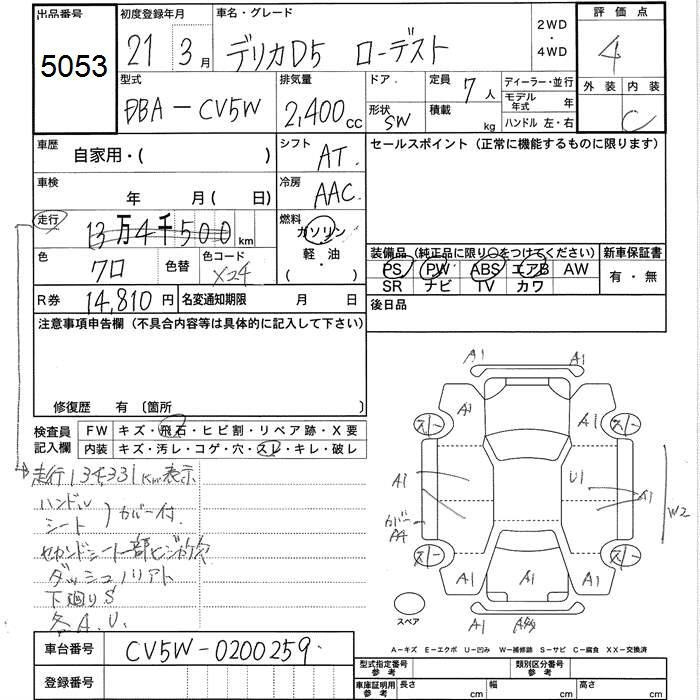 出品番号 初度登録年月 車名・グレード 評価点
5053 21 3月 デリカD5 ローデスト 2WD・4WD 4
型式 排気量 ドア 定員 ディーラー・並行 外装 内装
DBA-CV5W 2,400cc 7人 モデル年式 年 C
形状 SW 積載 kg ハンドル 左・右
車歴 シフト セールスポイント（正常に機能するものに限ります）
自家用・( ) AT
車検 冷房
年 月 ( 日) AAC
走行 燃料
13万4千500km ガソリン
軽・油
( )
色 色替 色コード
クロ X24
装備品（純正品に限り○をつけてください） 新車保証書
PS PW ABS エアB AW 有・無
SR ナビ TV カワ
R券 14,810円 名変通知期限 月 日 後日品
注意事項申告欄（不具合内容等は具体的に記入して下さい）
修復歴 有 〔箇所
検査員記入欄 FW キズ・飛石・ヒビ割・リペア跡・X要
内装 キズ・汚レ・コゲ・穴・スレ・キレ・破レ
走行134331Km表示
ハンドル
シート ) カバー付
セカンドシート一部ヒジカケ欠
ダッシュノリアト
下廻りS
各A.U.
A1 A1
A1 A1
スレー スレー
A1 U1 A1
W2
カバー A4
スレー スレー
A1 A1 A1
A1
スペア
A-キズ E-エクボ U-凹み W-補修跡 S-サビ C-腐食 XX-交換済
車台番号 CV5W-0200259
登録番号
型式指定番号 参考 類別区分番号 参考
車庫証明用 参考 長さ cm 幅 cm 高さ cm